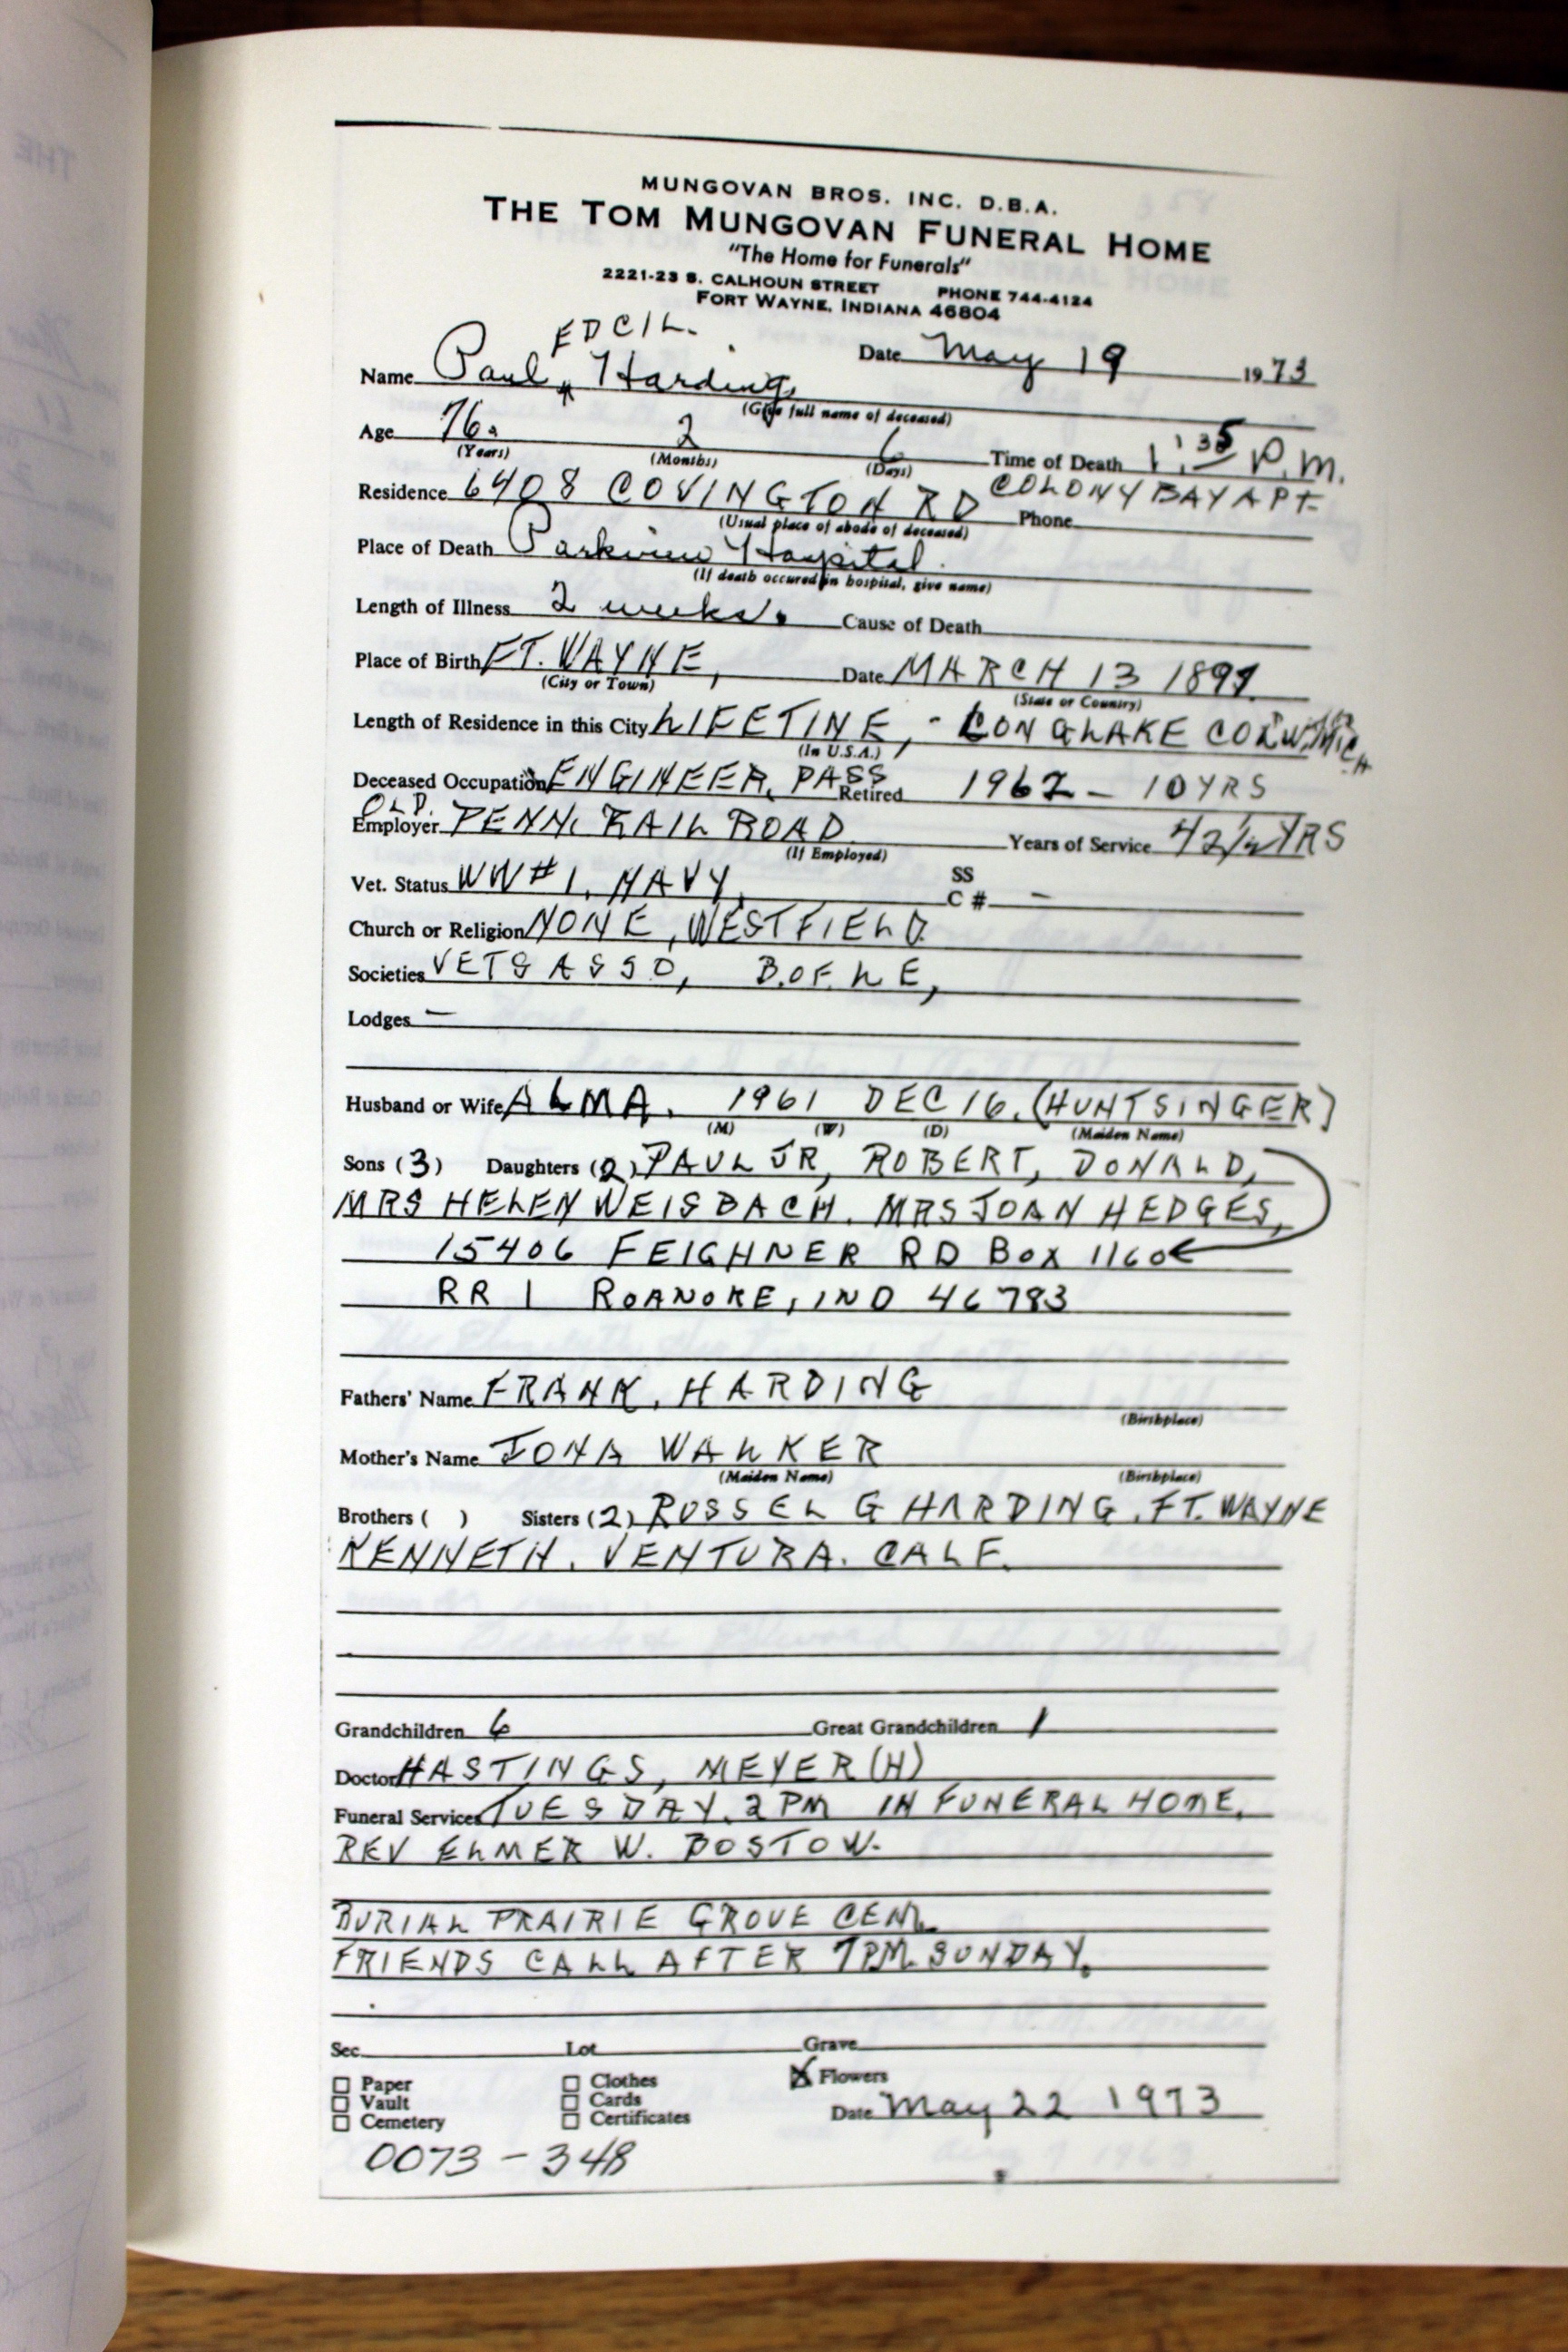 MUNGOVAN BROS. INC. D.B.A.
THE TOM MUNGOVAN FUNERAL HOME
"The Home for Funerals"
2221-23 S. CALHOUN STREET PHONE 744-4124
FORT WAYNE, INDIANA 46804
EDCIL.
Name Paul Harding Date May 19 1973
(Give full name of deceased)
Age 76 2 6 Time of Death 1:35 P.M.
(Years) (Months) (Days)
Residence 6408 COVINGTON RD COLONY BAY APT Phone
(Usual place of abode of deceased)
Place of Death Parkview Hospital
(If death occured in hospital, give name)
Length of Illness 2 weeks. Cause of Death
Place of Birth FT. WAYNE, Date MARCH 13 1897
(City or Town) (State or Country)
Length of Residence in this City LIFETINE, - LON GLAKE MICH
(In U.S.A.)
Deceased Occupation ENGINEER, PASS Retired 1962 - 10 YRS
OLD.
Employer PENN. RAIL ROAD Years of Service 42 1/2 YRS
(If Employed)
Vet. Status WW#1. NAVY SS
C # -
Church or Religion NONE, WESTFIELD
Societies VETS ASSO, B.OF.L E,
Lodges -
Husband or Wife ALMA. 1961 DEC 16. (HUNTSINGER)
(M) (W) (D) (Maiden Name)
Sons (3) Daughters (2) PAUL JR, ROBERT, DONALD,
MRS HELEN WEISBACH. MRS JOAN HEDGES,
15406 FEIGHNER RD BOX 1160
RR 1 ROANOKE, IND 46783
Fathers' Name FRANK. HARDING
(Birthplace)
Mother's Name IONA WALKER
(Maiden Name) (Birthplace)
Brothers ( ) Sisters (2) RUSSEL G HARDING. FT. WAYNE
KENNETH. VENTURA. CALF.
Grandchildren 6 Great Grandchildren 1
Doctor HASTINGS, MEYER (H)
Funeral Services TUESDAY. 2 PM IN FUNERAL HOME.
REV ELMER W. BOSTOW.
BURIAL PRAIRIE GROVE CEM.
FRIENDS CALL AFTER 7PM. SUNDAY.
Sec. Lot Grave
Paper Clothes X Flowers
Vault Cards
Cemetery Certificates Date May 22 1973
0073-348